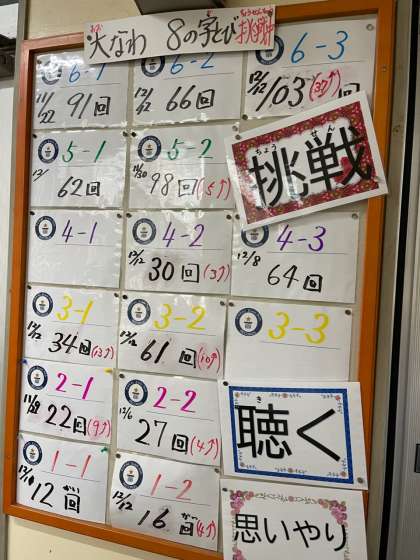 大なわ 8の字とび 挑戦
ちょうせん
6-1
11/22 91回
6-2
12/12 66回
6-3
12/12 103回 (37↑)
5-1
12/ 62回
5-2
11/30 98回 (5↑)
挑戦
ちょう せん
4-1
4-2
12/12 30回 (3↑)
4-3
12/8 64回
3-1
12/12 34回 (13↑)
3-2
12/12 61回 (10↑)
3-3
2-1
11/28 22回 (9↑)
2-2
12/6 27回 (4↑)
き
聴く
1-1
かい
12回
1-2
かい
12/12 16回 (4↑)
思いやり